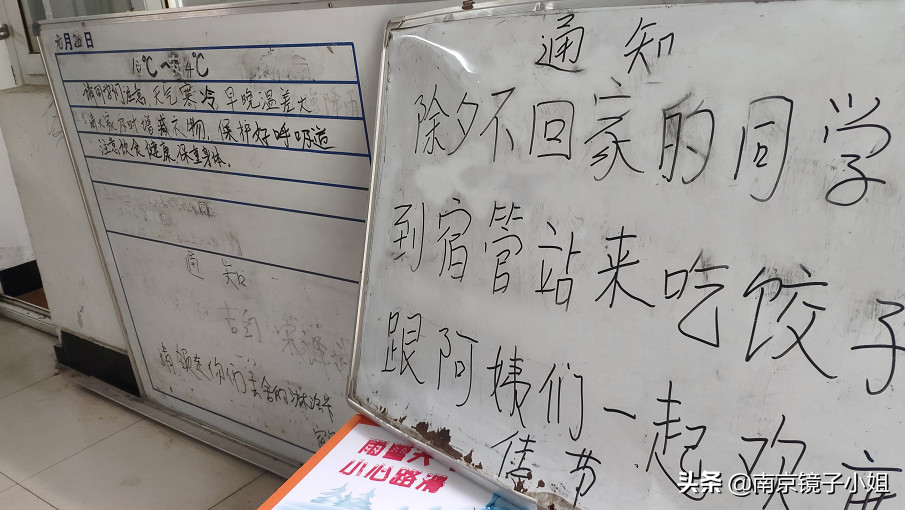 元月20日
℃~4℃
请同学们注意，天气寒冷早晚温差大
请大家及时增减衣物，保护好呼吸道
注意饮食健康，保重身体。
通知
请领走你们宿舍的淋浴卡
通知
除夕不回家的同学
到宿管站来吃饺子
跟阿姨们一起欢度
佳节
小心路滑
头条 @南京镜子小姐